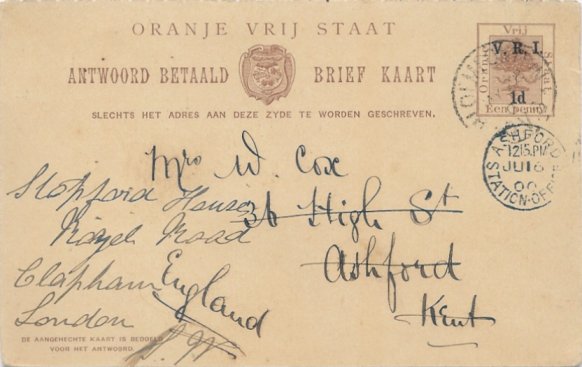 ORANJE VRIJ STAAT
ANTWOORD BETAALD BRIEF KAART
SLECHTS HET ADRES AAN DEZE ZYDE TE WORDEN GESCHREVEN.
Vrij
Oranje
V. R. I.
1d
Een penny
ASHFORD
12.15.PM
JU 16
00
STATION
Mrs W. Cox
36 High St
Ashford
Kent
England
Stopford House
Road
Clapham
London
S. W
DE AANGEHECHTE KAART IS BEDOELD
VOOR HET ANTWOORD.